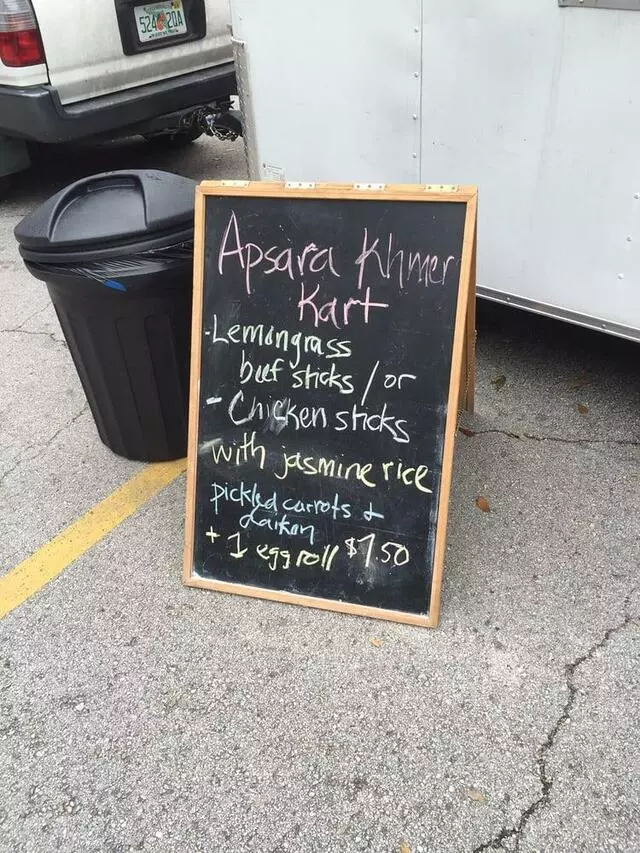 524
Apsara Khmer
Kart
-Lemongrass
beef sticks / or
- Chicken sticks
with jasmine rice
pickled carrots +
daikon
+ 1 egg roll $7.50